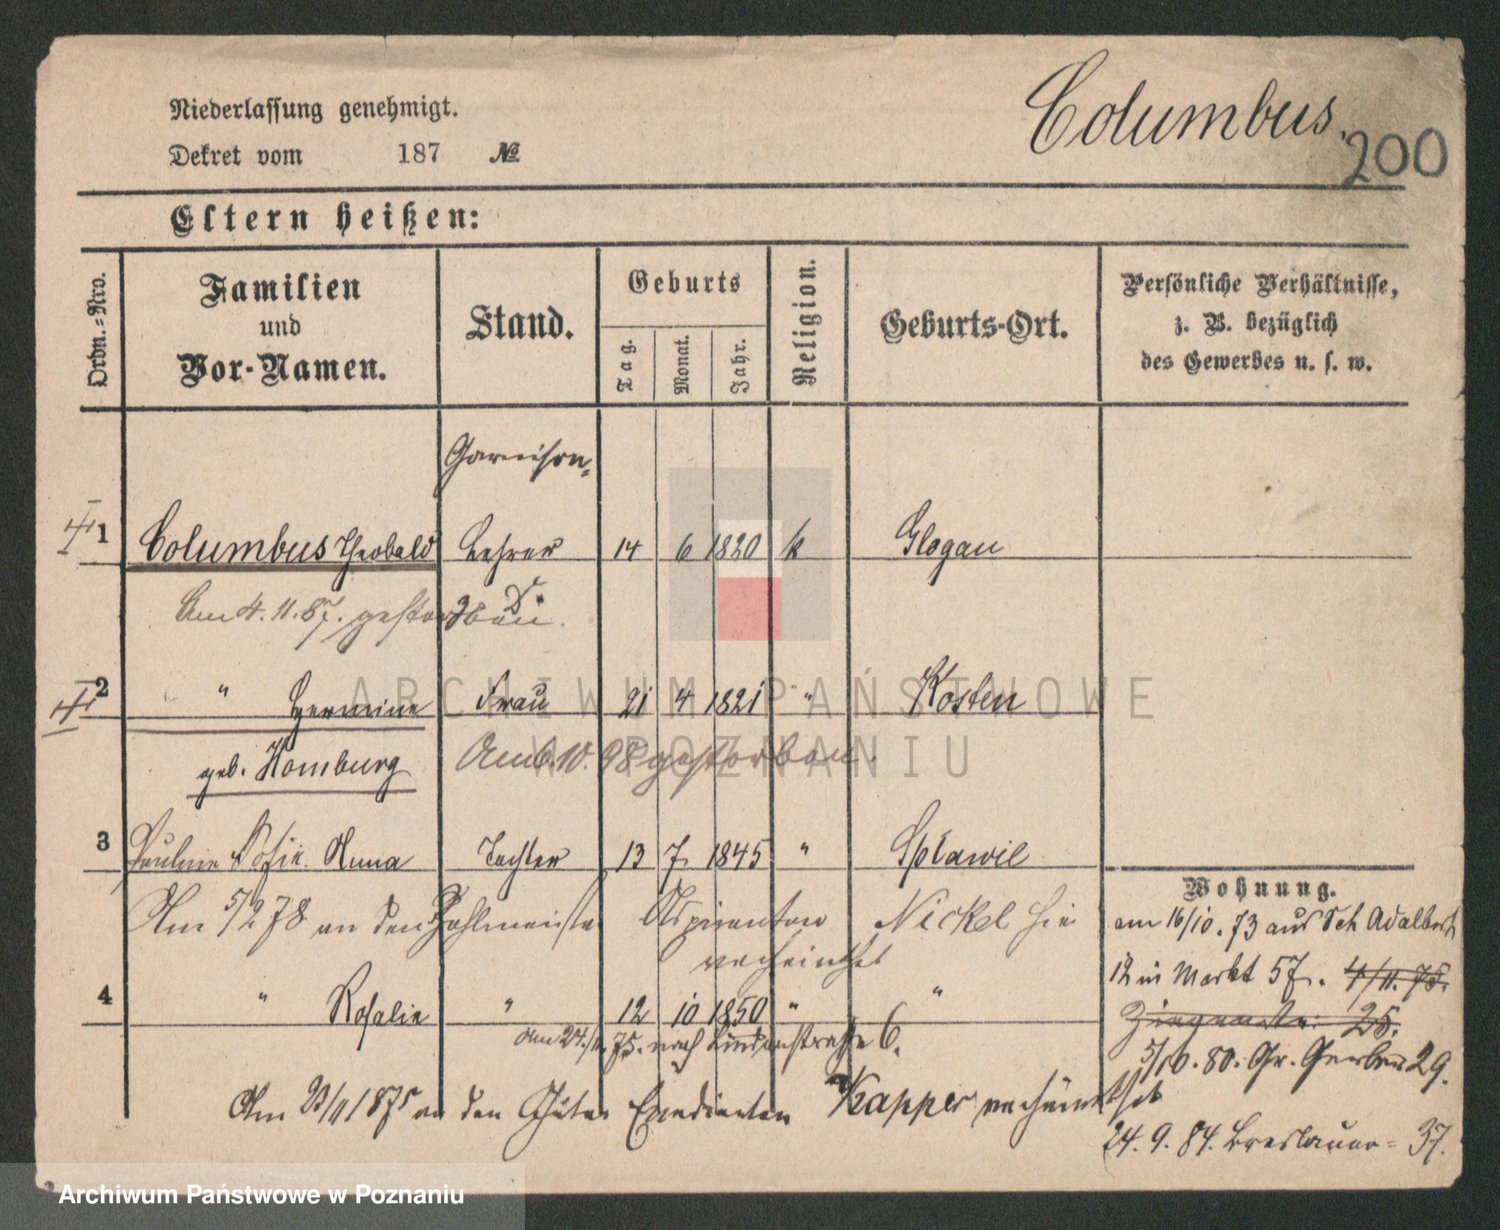 Niederlassung genehmigt.
Columbus.
200
Dekret vom 187 №
Eltern heißen:
Ordn.-Nro.
Familien
und
Vor-Namen.
Stand.
Geburts
Tag.
Monat.
Jahr.
Religion.
Geburts-Ort.
Persönliche Verhältnisse,
z. B. bezüglich
des Gewerbes u. s. w.
Garnison-
1 Columbus Theobald Lehrer 14 6 1820 k Glogau
Am 4.11.87. gestorben.
2 " Hermine Frau 21 4 1821 " Kosten
geb. Homburg
Am 6.10.98 gestorben.
3 Pauline Sofie Anna Tochter 13 7 1845 "
Am 5/2 78 an den Zahlmeister Aspiranten Nickel hie
verheirathet
4 " Rosalie " 12 10 1850 " "
Am 24./11. 75. nach Lindenstraße 6.
Am 23/11 1875 an den Güter Expedienten Kapper verheirathet
Wohnung.
am 16/10. 73 aus Sct Adalbert
12 in Markt 57. 4/11. 75.
Ziegenstr: 25.
5/10. 80. Gr. Gerber 29.
24. 9. 84. Breslauer- 37.
ARCHIWUM PAŃSTWOWE
W POZNANIU
Archiwum Państwowe w Poznaniu